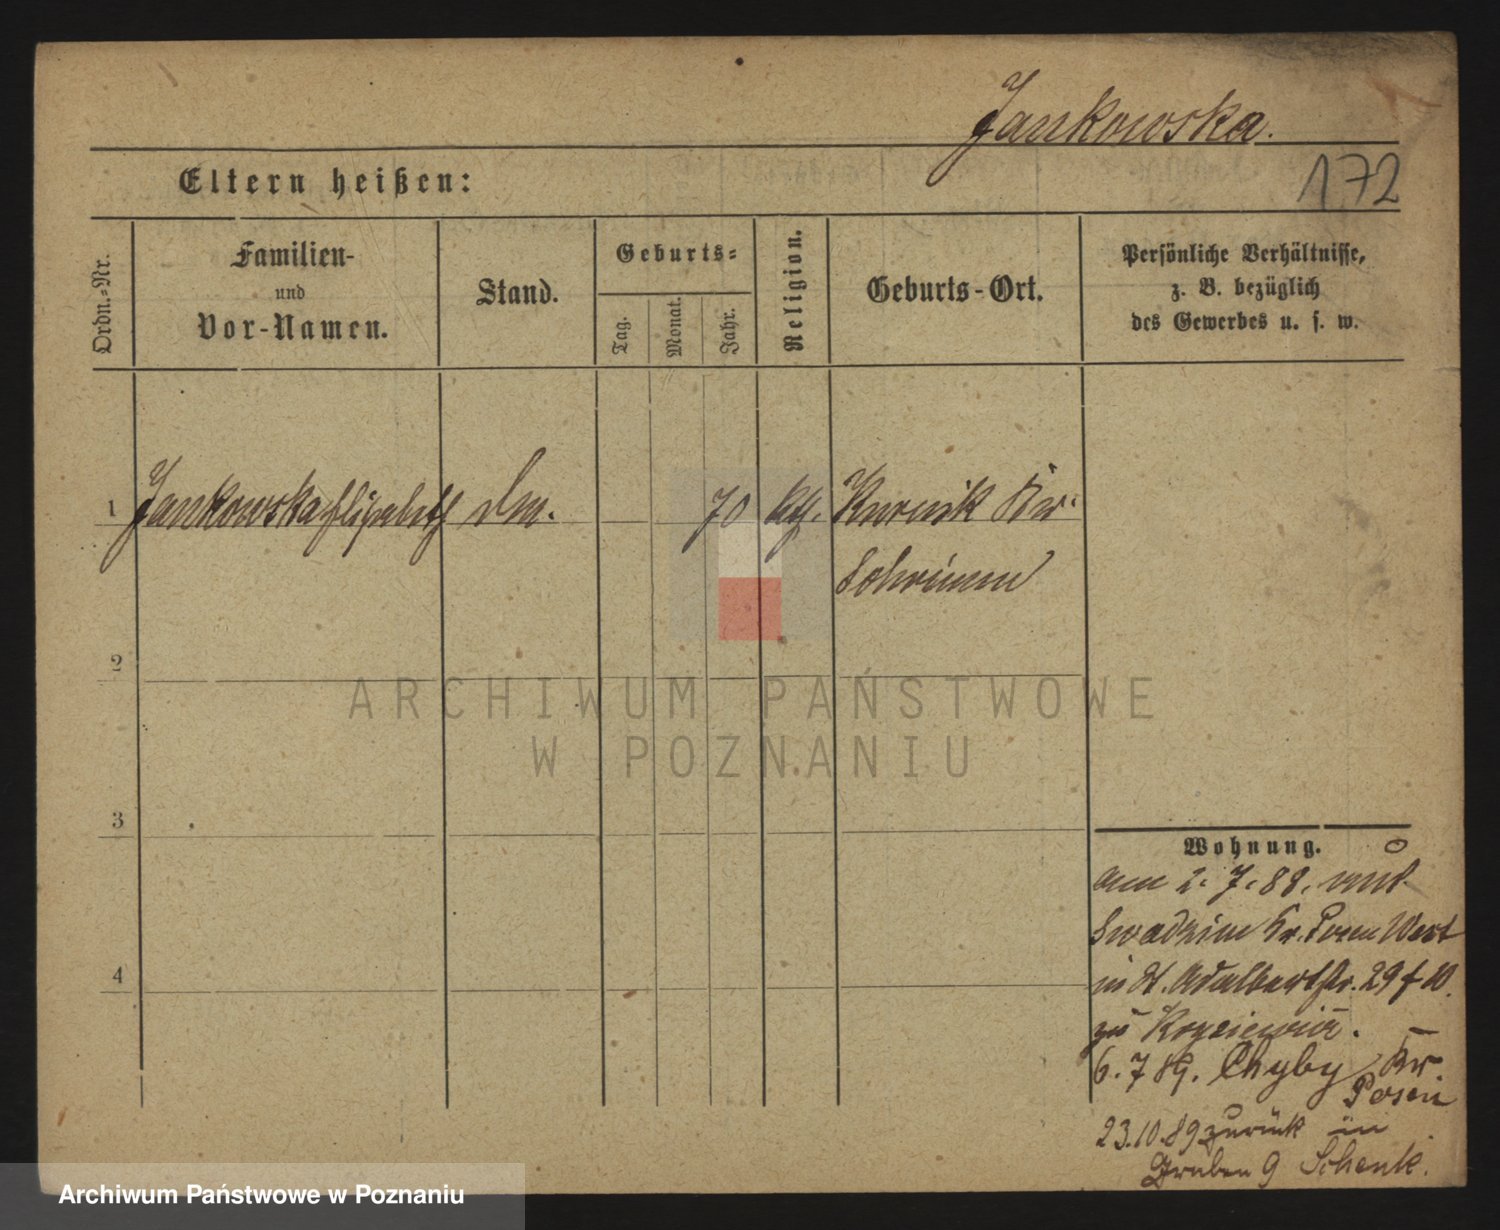 Jankowska.
172
Eltern heißen:
Ordn.-Nr.
Familien-
und
Vor-Namen.
Stand.
Geburts-
Tag.
Monat.
Jahr.
Religion.
Geburts-Ort.
Persönliche Verhältnisse,
z. B. bezüglich
des Gewerbes u. s. w.
1 Jankowska Elisabeth 70 kth. Kurnik Kr.
Schrimm
2
3
4
Wohnung.
am 2. 7. 88. mit
Swadzim Kr. Posen West
in St. Adalbertstr. 29
zu
6. 7 89. Chyby Kr.
Posen
23.10.89 zurück in
Gruben 9 Schenk.
ARCHIWUM PAŃSTWOWE
W POZNANIU
Archiwum Państwowe w Poznaniu